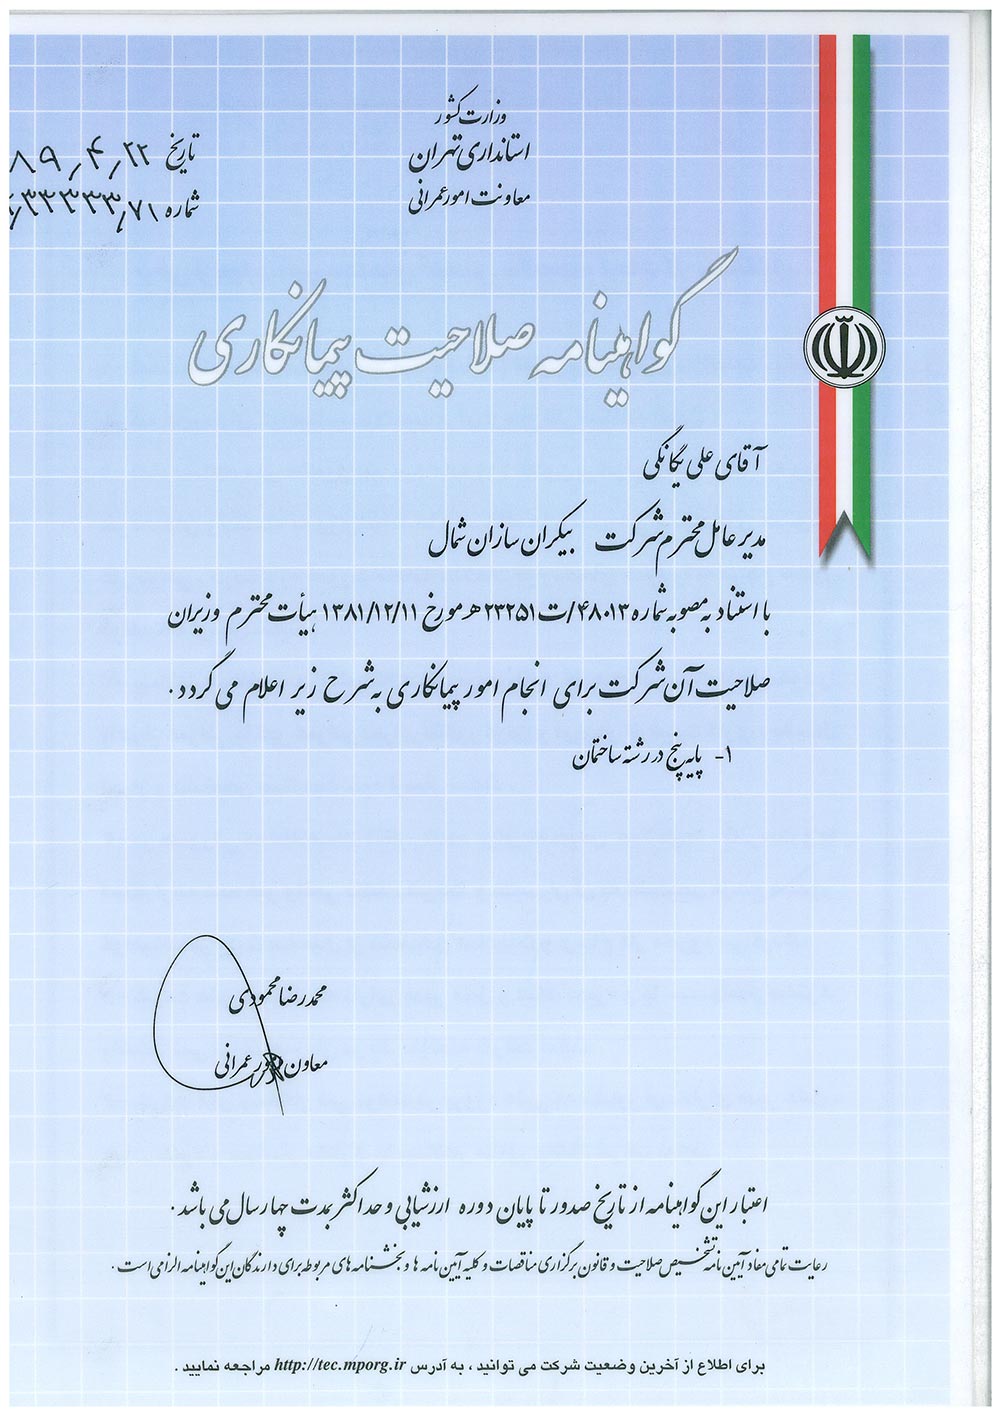 وزارت کشور
استانداری تهران
معاونت امور عمرانی
تاریخ ۸۹/۴/۲۲
شماره ۷۱/۳۳۳۳۳
گواهینامه صلاحیت پیمانکاری
آقای علی یگانگی
مدیر عامل محترم شرکت بیکران سازان شمال
با استناد به مصوبه شماره ۴۸۰۱۳/ت۲۳۲۵۱هـ مورخ ۱۳۸۱/۱۲/۱۱ هیأت محترم وزیران
صلاحیت آن شرکت برای انجام امور پیمانکاری به شرح زیر اعلام می گردد.
۱- پایه پنج در رشته ساختمان
محمدرضا محمودی
معاون امور عمرانی
اعتبار این گواهینامه از تاریخ صدور تا پایان دوره ارزشیابی و حداکثر بمدت چهار سال می باشد.
رعایت تمامی مفاد آیین نامه تشخیص صلاحیت و قانون برگزاری مناقصات و کلیه آیین نامه ها و بخشنامه های مربوطه برای دارندگان این گواهینامه الزامی است.
برای اطلاع از آخرین وضعیت شرکت می توانید ، به آدرس http://tec.mporg.ir مراجعه نمایید .